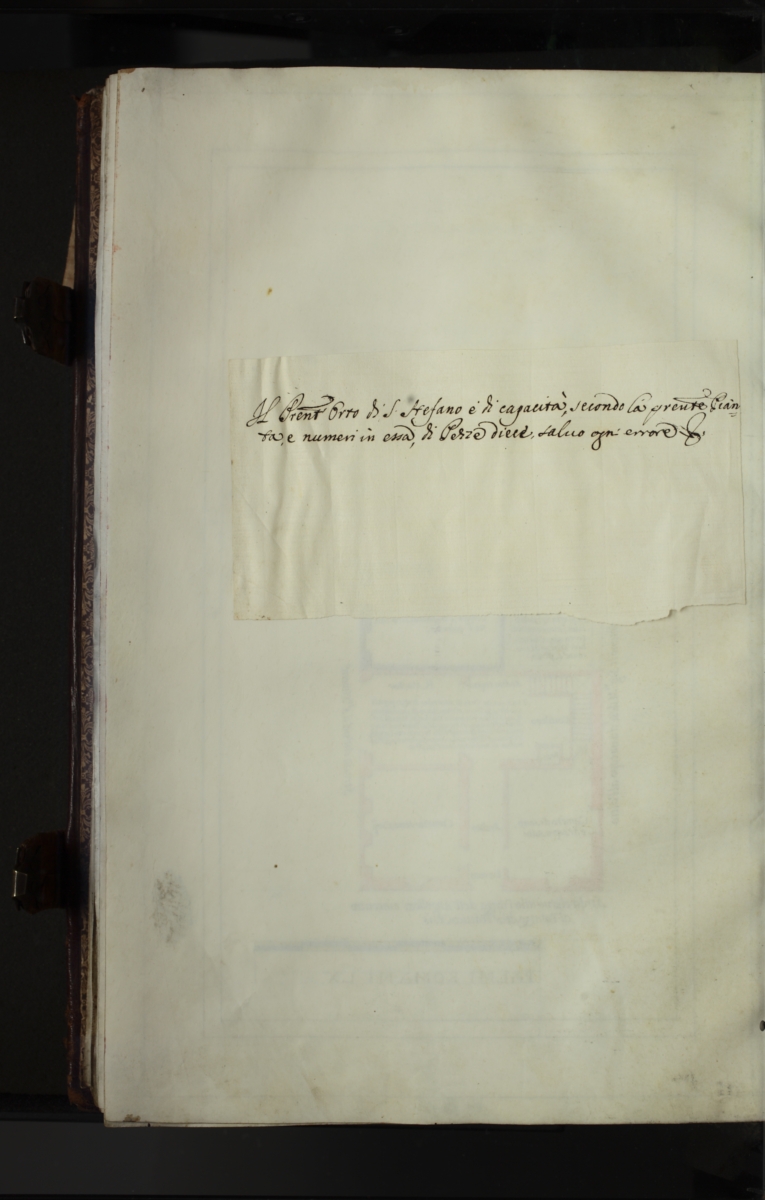 Il Prent̃e Orto di S. Stefano è di capacità, secondo la preñte Pian-
ta, e numeri in essa, di Pezze dieci, salvo ogni errore